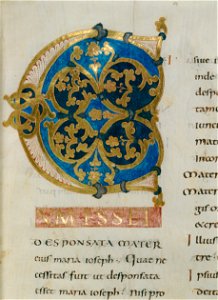 C
UM ESSET
DESPONSATA MATER
eius maria ioseph. Quae ne
cessitas fuit ut desponsata
esset maria ioseph. Nisi pro
siue i
desponsa
tam
iunc
mater
gis o
exem
illu
tre